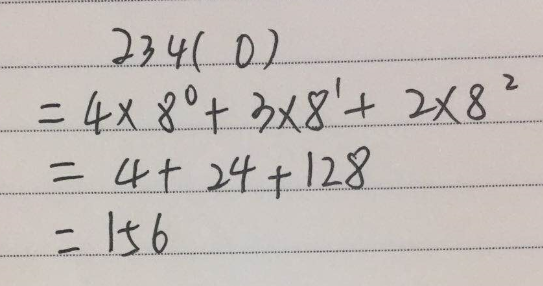 234( 0)
= 4×8⁰+3×8¹+ 2×8²
= 4+ 24+128
= 156